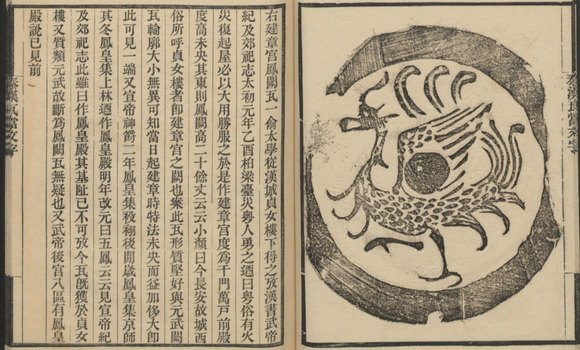 右建章宮鳳闕瓦一俞太學從漢城貞女樓下得之攷漢書武帝
紀及郊祀志太初元年乙酉柏梁臺災粵人勇之迺曰粵俗有火
災復起屋必以大用勝服之於是作建章宮度為千門萬戶前殿
度高未央其東則鳳闕高二十餘丈云云小顏曰今長安故城西
俗所呼貞女樓者卽建章宮之闕也案此瓦形質堅好與元武闕
瓦輪廓大小無異可知當日起建章時特法未央而益加侈大卽
此可見一端又宣帝神爵二年鳳皇集祋祤後開啟鳳皇集京師
其冬鳳皇集上林迺作鳳皇殿明年改元曰五鳳云云見宣帝紀
及郊祀志此雖曰作鳳皇殿其基阯已不可攷今瓦旣獲於貞女
樓又質類元武故斷為鳳闕瓦無疑也又武帝後宮八區有鳳皇
殿說已見前